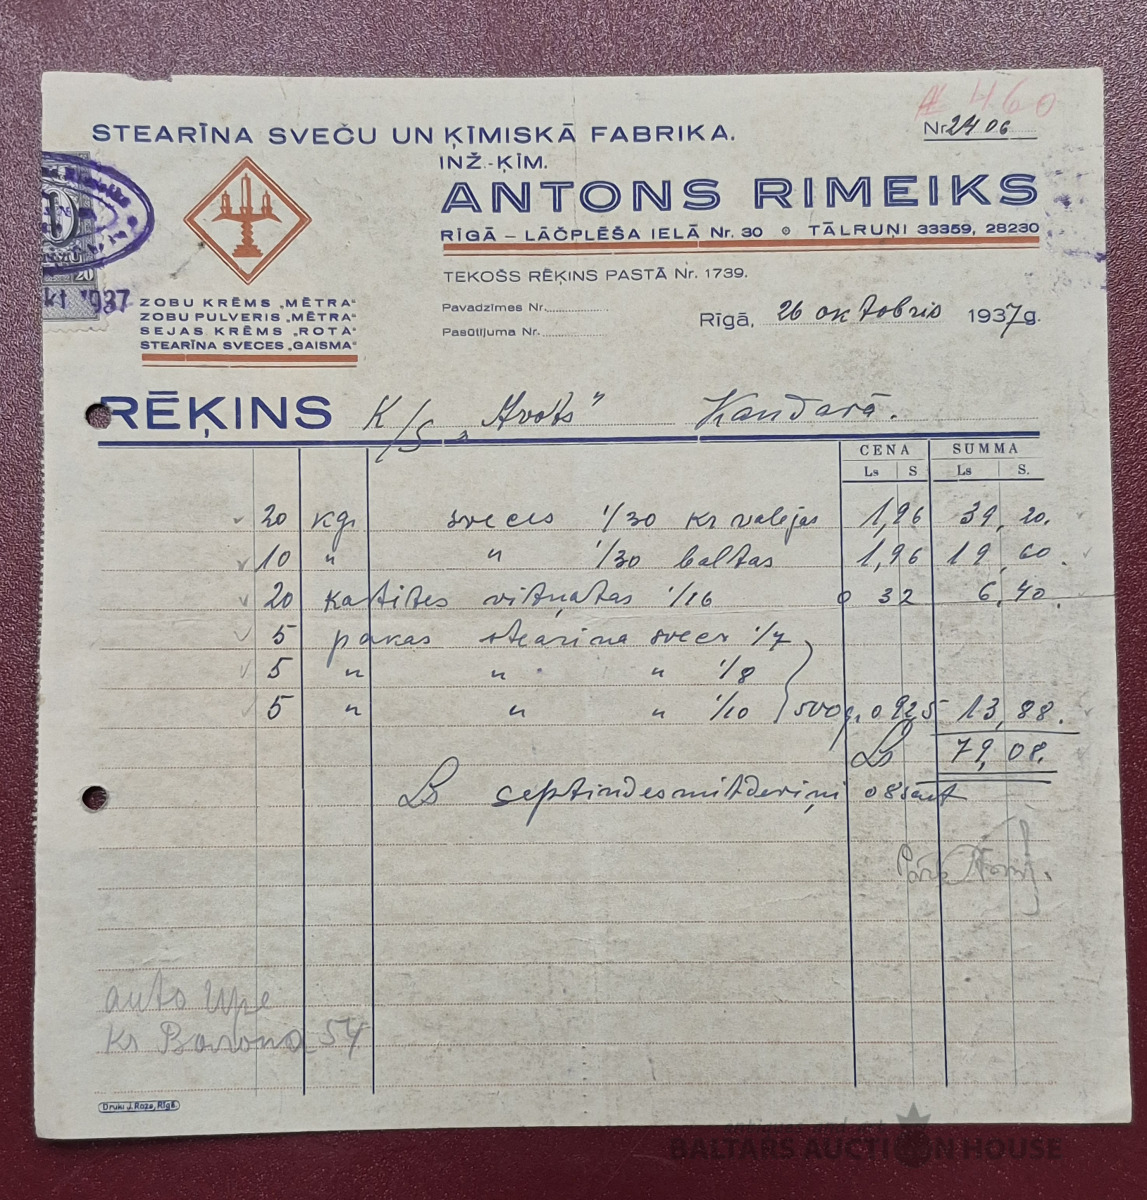 № 460
STEARĪNA SVEČU UN ĶĪMISKĀ FABRIKA.
Nr. 2406
INŽ.-ĶĪM.
ANTONS RIMEIKS
RĪGĀ – LĀČPLĒŠA IELĀ Nr. 30 ⊙ TĀLRUŅI 33359, 28230
TEKOŠS RĒĶINS PASTĀ Nr. 1739.
20
kt 1937
ZOBU KRĒMS „MĒTRA“
ZOBU PULVERIS „MĒTRA“
SEJAS KRĒMS „ROTA“
STEARĪNA SVECES „GAISMA“
Pavadzīmes Nr.
Pasūtījuma Nr.
Rīgā, 26 oktobris 1937g.
RĒĶINS K/S „Avots“ Kandavā.
CENA SUMMA
Ls S Ls S.
20 kgr sveces 1/30 kr valejas 1,96 39,20.
10 " " 1/30 baltas 1,96 19,60.
20 kastites vitņatas 1/16 0 32 6,40.
5 pakas stearina svec 1/7
5 " " " 1/8
5 " " " 1/10 500 g. 0 925 13,88.
Ls 79,08.
Ls septindesmitdeviņi 08 sant
auto Upe
Kr Barona 54
Druki J. Roze, Rīgā.
BALTARS AUCTION HOUSE